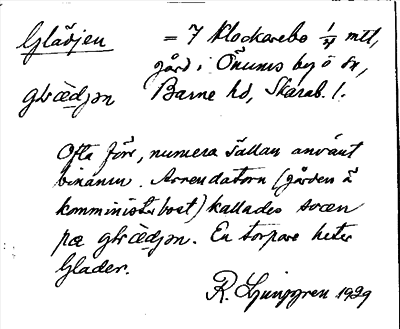 Glädjen = 7 Klockarebo 1/4 mtl,
gård i Önums by o sn,
glæ̀djən Barne hd, Skarab. l.
Ofta förr, numera sällan använt
binamn. Arrendatorn (gården ä
komministerbost) kallades
pæ glæ̀djən. En torpare heter
Glader.
R. Ljunggren 1929